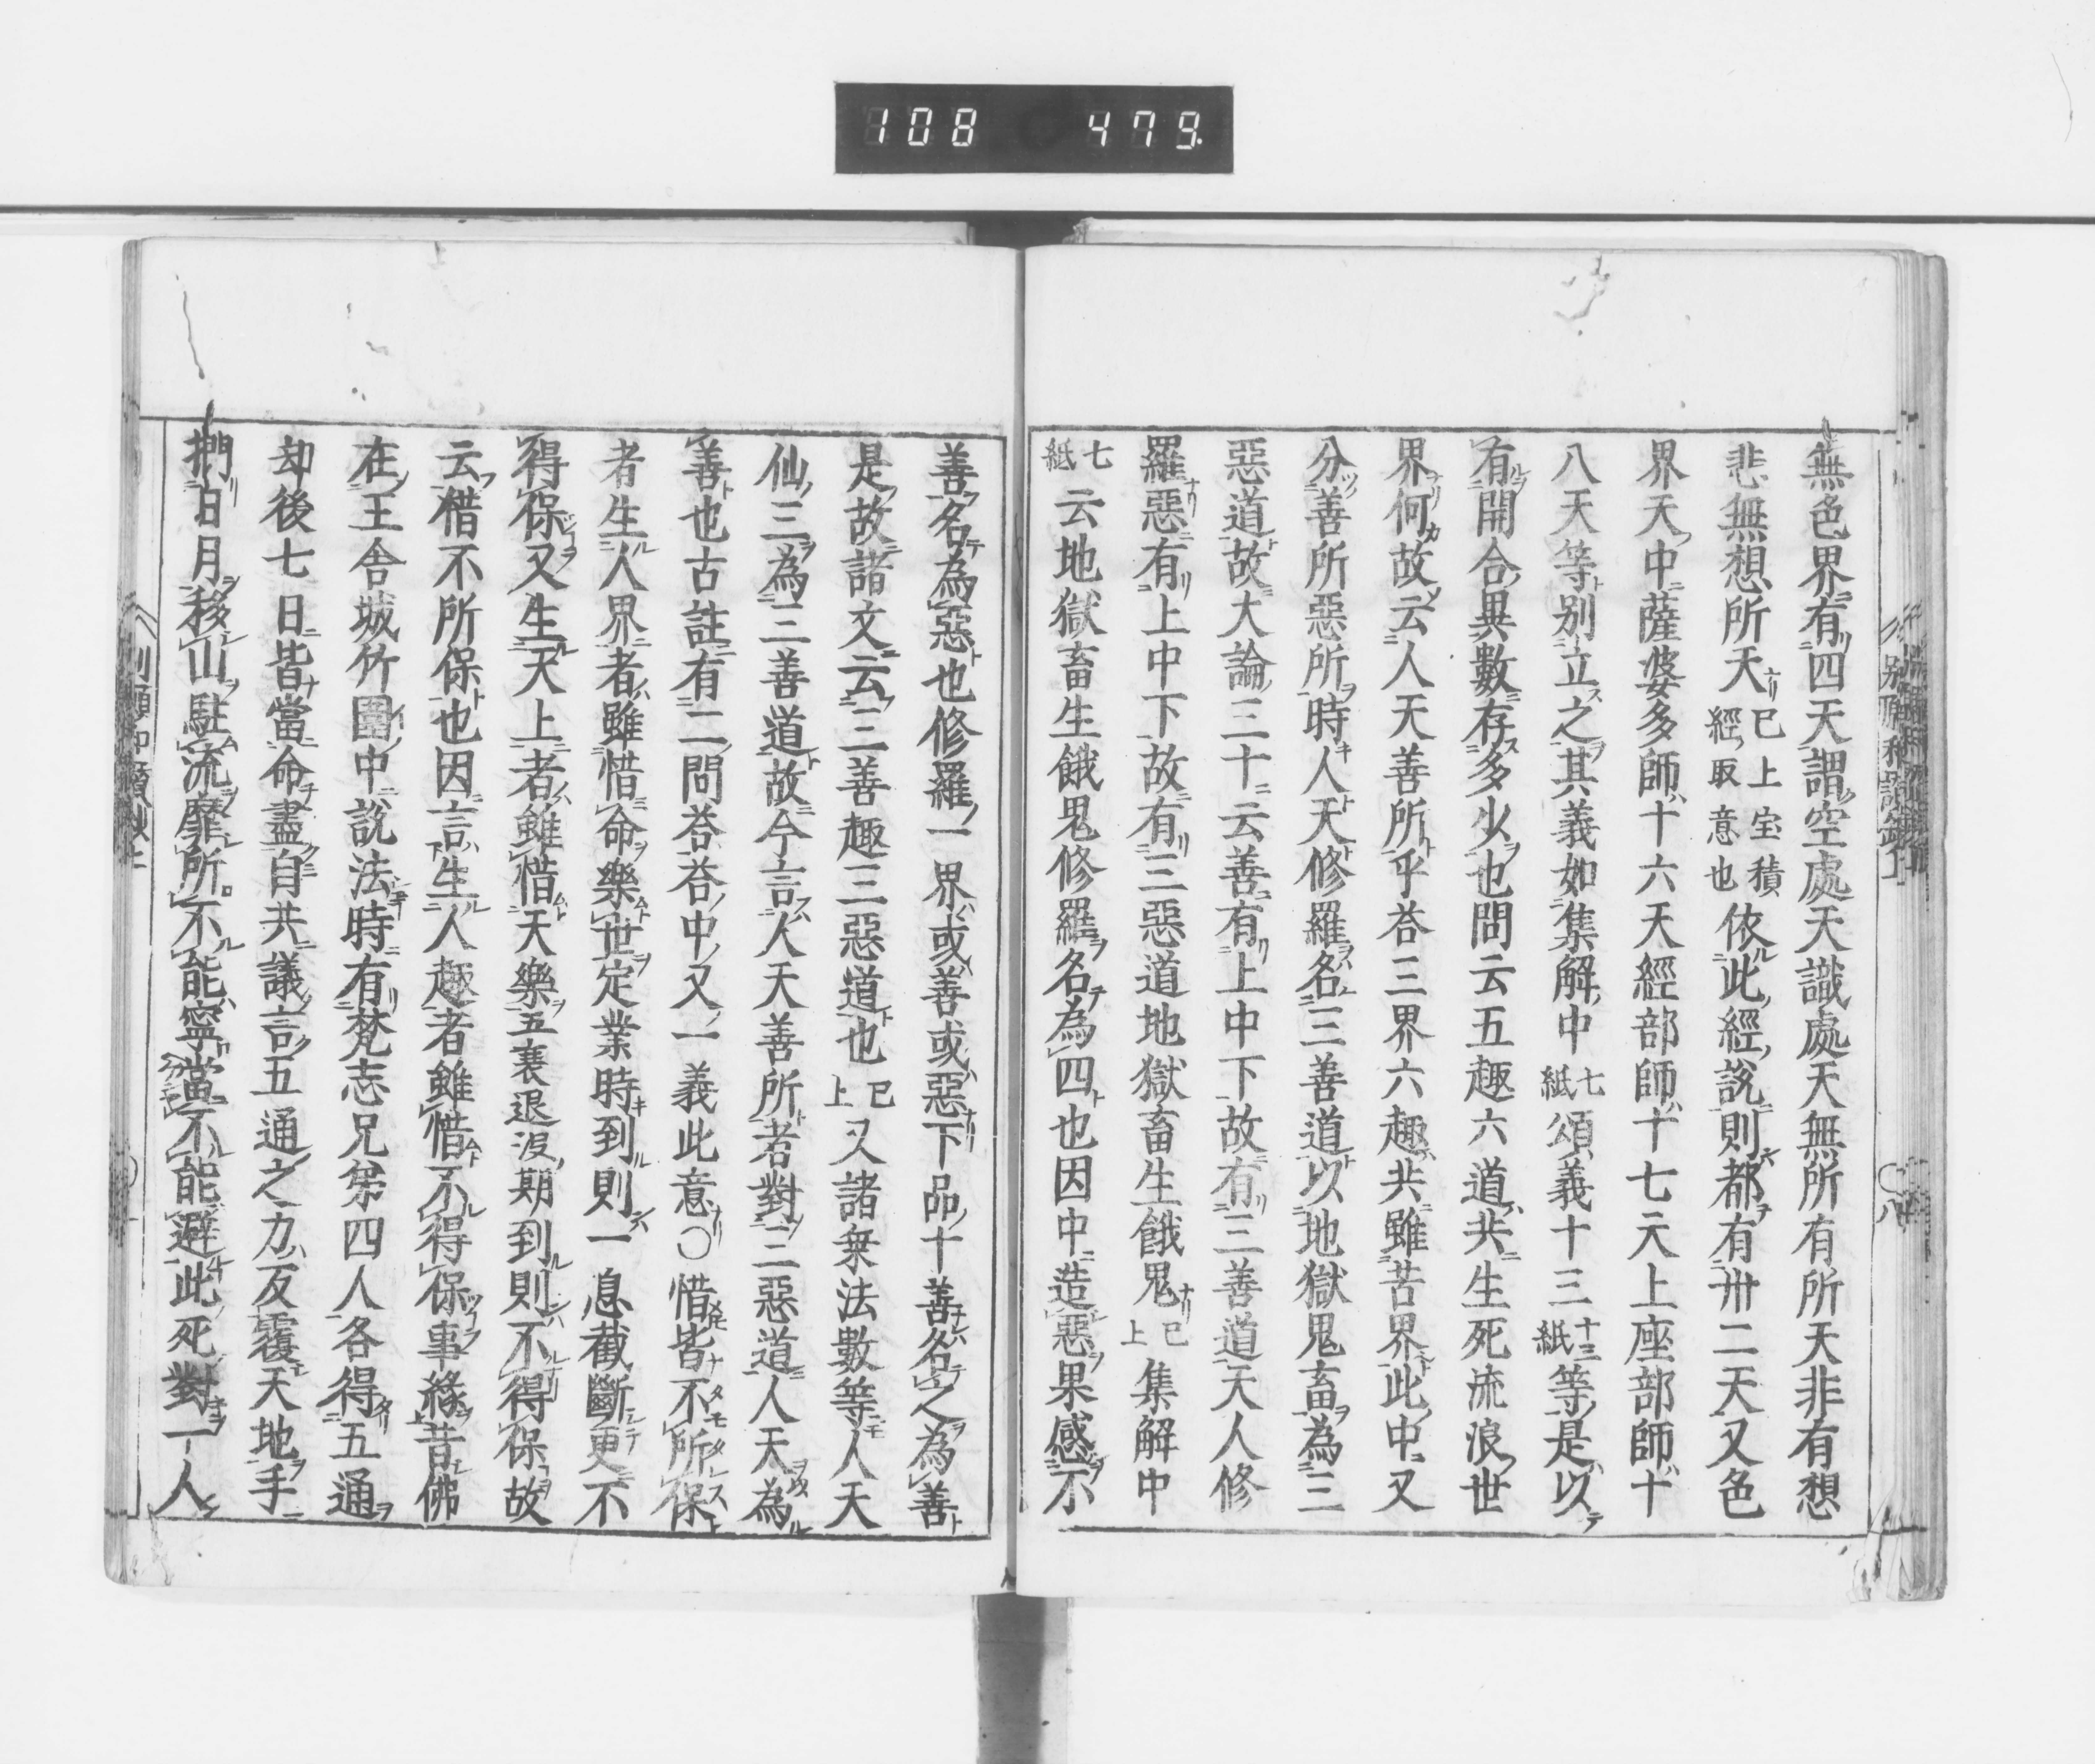 108 479.
無色界有四天謂空處天識處天無所有所天非有想
悲無想所天已上宝積經取意也依此經說則都有卅二天又色
界天中薩婆多師十六天經部師十七天上座部師十
八天等別立之其義如集解中七紙頌義十三十三紙等是以
有開合異數存多少也問云五趣六道共生死流浪世
界何故云人天善所乎荅三界六趣共雖苦界此中又
分善所惡所時人天修羅名三善道以地獄鬼畜為三
惡道故大論三十云善有上中下故有三善道天人修
羅惡有上中下故有三惡道地獄畜生餓鬼已上集解中
七紙云地獄畜生餓鬼修羅名為四也因中造惡果感不
善名為惡也修羅一界或善或惡下品十善名之為善
是故諸文云三善趣三惡道也已上又諸無法數等人天
仙三為三善道故今言人天善所者對三惡道人天為
善也古註有二問荅荅中又一義此意〇惜皆不所保
者生人界者雖惜命樂世定業時到則一息截斷更不
得保又生天上者雖惜天樂五衰退没期到則不得保故
云惜不所保也因言生人趣者雖惜不得保事緣昔佛
在王舍城竹園中說法時有梵志兄弟四人各得五通
却後七日皆當命盡自共議言五通之力反覆天地手
捫日月移山駐流靡所不能寧當不能避此死對一人